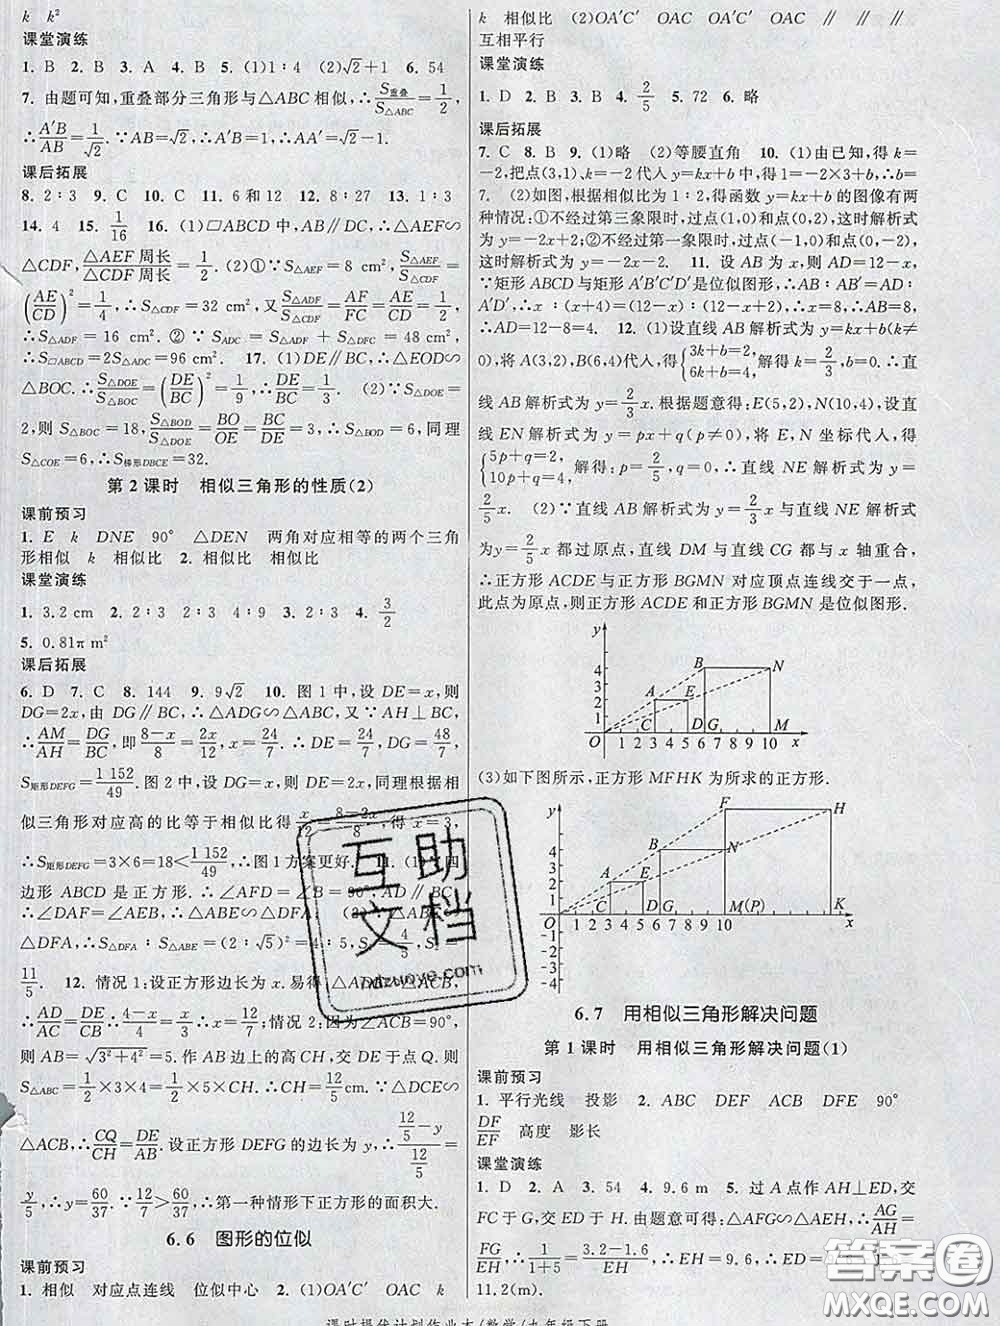 k k²
课堂演练
1. B 2. B 3. A 4. B 5. (1)1∶4 (2)√2+1 6. 54
7. 由题可知,重叠部分三角形与△ABC 相似,∴S重叠/S△ABC=1/2,
∴A′B/AB=1/√2. ∵AB=√2,∴A′B=1,∴AA′=√2-1.
课后拓展
8. 2∶3 9. C 10. C 11. 6和12 12. 8∶27 13. 1∶3
14. 4 15. 1/16 16. (1)▱ABCD 中,AB∥DC,∴△AEF∽
△CDF,△AEF 周长/△CDF 周长=1/2. (2)①∵S△AEF=8 cm²,S△AEF/S△CDF=
(AE/CD)²=1/4,∴S△CDF=32 cm². ∵S△ADF/S△CDF=AF/FC=AE/CD=1/2,
∴S△ADF=16 cm². ②∵S△ADC=S△ADF+S△DFC=48 cm²,
∴S▱ABCD=2S△ADC=96 cm². 17. (1)DE∥BC,∴△EOD∽
△BOC. ∴S△DOE/S△BOC=(DE/BC)²=1/9,∴DE/BC=1/3. (2)∵S△DOE=
2,则 S△BOC=18,S△BOD/S△DOE=BO/OE=BC/DE=3,∴S△BOD=6,同理
S△COE=6,∴S梯形DBCE=32.
第 2 课时 相似三角形的性质(2)
课前预习
1. E k DNE 90° △DEN 两角对应相等的两个三角
形相似 k 相似比 2. 相似比 相似比
课堂演练
1. 3.2 cm 2. 2∶3 2∶3 4∶9 3. 2∶3 4. 3/2
5. 0.81π m²
课后拓展
6. D 7. C 8. 144 9. 9√2 10. 图 1 中,设 DE=x,则
DG=2x,由 DG∥BC,∴△ADG∽△ABC,又∵AH⊥BC,
∴AM/AH=DG/BC,即 8-x/8=2x/12,x=24/7. ∴DE=24/7,DG=48/7,
S矩形DEFG=1 152/49. 图 2 中,设 DG=x,则 DE=2x,同理根据相
似三角形对应高的比等于相似比得 8-2x/8,得 x=3,
∴S矩形DEFG=3×6=18<1 152/49,∴图 1 方案更好. 11. (1)∵四
边形 ABCD 是正方形. ∴∠AFD=∠B=90°,AD∥BC,
∴∠DAF=∠AEB. ∴△ABE∽△DFA. (2)△ABE∽
△DFA,∴S△DFA∶S△ABE=(2∶√5)²=4∶5,
11/5. 12. 情况 1:设正方形边长为 x. 易得△ADE∽△ACB,
∴AD/AC=DE/CB ∴4-x/4=x/3 ∴x=12/7;情况 2:因为∠ACB=90°,
则 AB=√3²+4²=5. 作 AB 边上的高 CH,交 DE 于点 Q. ∵
S△ABC=1/2×3×4=1/2×5×CH. ∴CH=12/5 cm. ∵△DCE∽
△ACB,∴CQ/CH=DE/AB. 设正方形 DEFG 的边长为 y,∴12/5-y/12/5=
y/5,∴y=60/37. ∵12/7>60/37,∴第一种情形下正方形的面积大.
6.6 图形的位似
课前预习
1. 相似 对应点连线 位似中心 2. (1)OA′C′ OAC k
k 相似比 (2)OA′C′ OAC OA′C′ OAC ∥ ∥ ∥
互相平行
课堂演练
1. D 2. B 3. B 4. 2/5 5. 72 6. 略
课后拓展
7. C 8. B 9. (1)略 (2)等腰直角 10. (1)由已知,得 k=
-2,把点(3,1)、k=-2 代入 y=kx+b 中,得 1=-2×3+b,b=
7. (2)如图,根据相似比为 1∶2,得函数 y=kx+b 的图像有两
种情况:①不经过第三象限时,过点(1,0)和点(0,2),这时解析式
为 y=-2x+2;②不经过第一象限时,过点(-1,0)和点(0,-2),
这时解析式为 y=-2x-2. 11. 设 AB 为 x,则 AD=12-x,
∵矩形 ABCD 与矩形 A′B′C′D′是位似图形,∴AB∶AB′=AD∶
AD′,∴x∶(x+4)=(12-x)∶(12-x+2),∴x=8,∴AB=8,
∴AD=12-8=4. 12. (1)设直线 AB 解析式为 y=kx+b(k≠
0),将 A(3,2),B(6,4)代入,得{3k+b=2, 6k+b=4, 解得:k=2/3,b=0. ∴直
线 AB 解析式为 y=2/3 x. 根据题意得:E(5,2),N(10,4),设直
线 EN 解析式为 y=px+q(p≠0),将 E,N 坐标代人,得
{5p+q=2, 10p+q=4, 解得:p=2/5,q=0. ∴直线 NE 解析式为 y=
2/5 x. (2)∵直线 AB 解析式为 y=2/3 x 与直线 NE 解析式
为 y=2/5 x 都过原点,直线 DM 与直线 CG 都与 x 轴重合,
∴正方形 ACDE 与正方形 BGMN 对应顶点连线交于一点,
此点为原点,则正方形 ACDE 和正方形 BGMN 是位似图形.
y
4
3
2
1
A E B N
C D G M
O 1 2 3 4 5 6 7 8 9 10 x
(3)如下图所示,正方形 MFHK 为所求的正方形.
y
4
3
2
1
F H
B N
A E
C D G M(P) K
O 1 2 3 4 5 6 7 8 9 10 x
-1
-2
-3
-4
6.7 用相似三角形解决问题
第 1 课时 用相似三角形解决问题(1)
课前预习
1. 平行光线 投影 2. ABC DEF ACB DFE 90°
DF/EF 高度 影长
课堂演练
1. D 2. A 3. 54 4. 9.6 m 5. 过 A 点作 AH⊥ED,交
FC 于 G,交 ED 于 H. 由题意可得:△AFG∽△AEH,∴AG/AH=
FG/EH,∴1/1+5=3.2-1.6/EH,∴EH=9.6,∴ED=
11.2(m).
课时提优计划作业本/数学/九年级下册
互助
文档
hdzuoye.com
答案卷